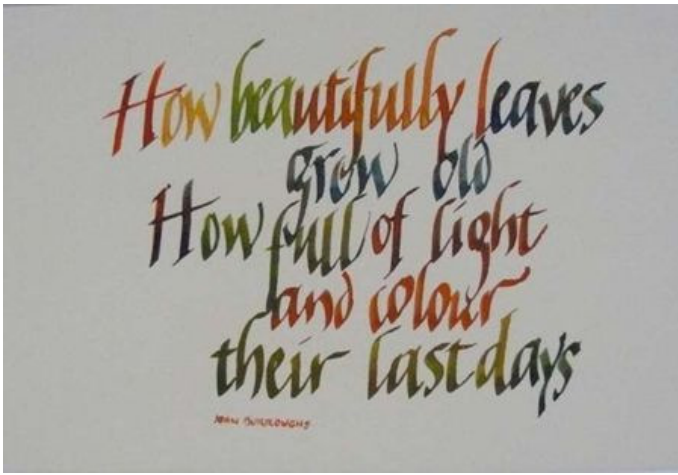 How beautifully leaves
grow old
How full of light
and colour
their last days
JOHN BURROUGHS